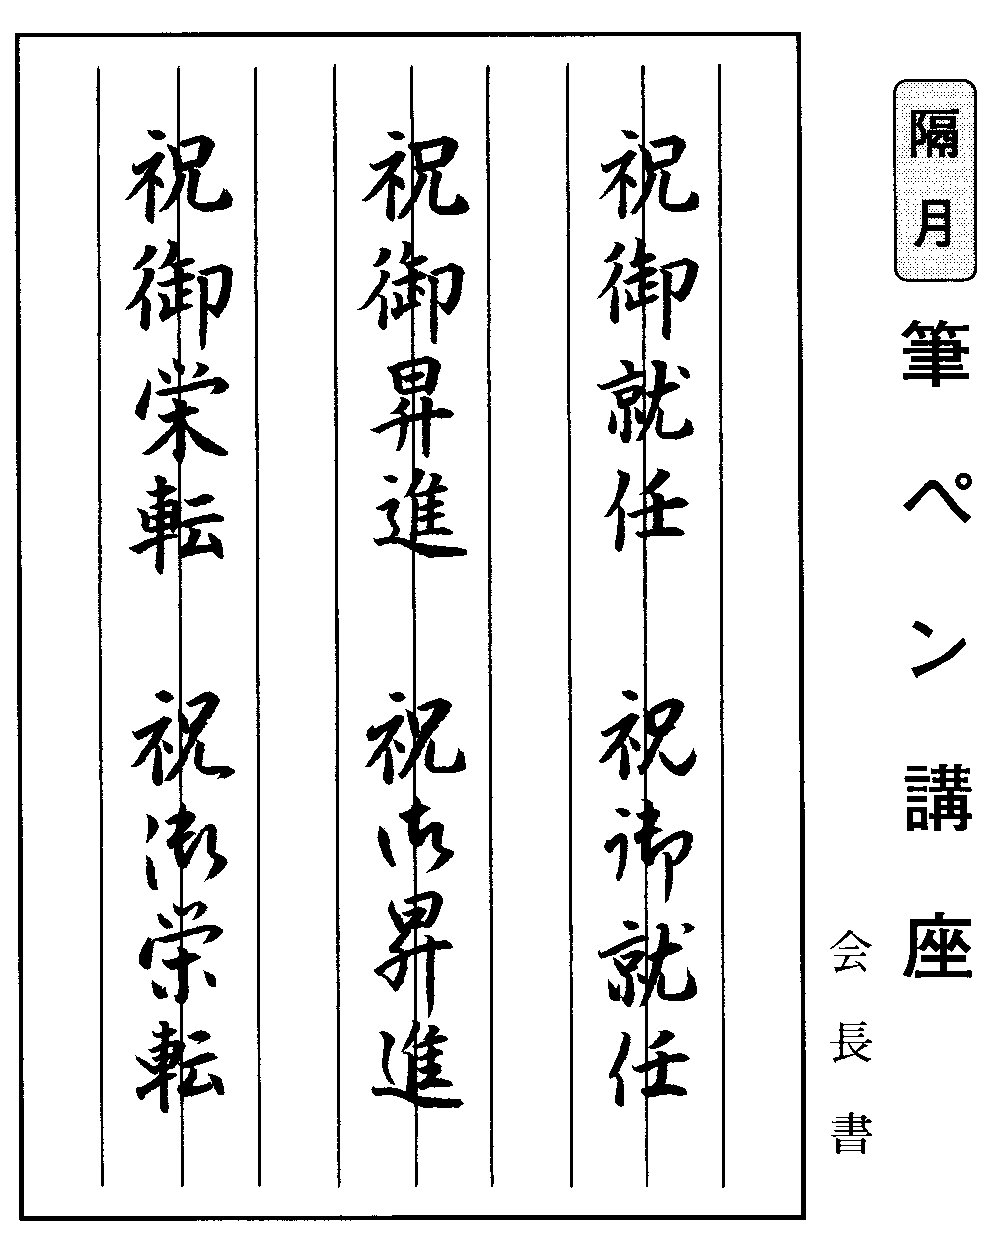 隔月
筆ペン講座
会長書
祝御就任 祝御就任
祝御昇進 祝御昇進
祝御栄転 祝御栄転